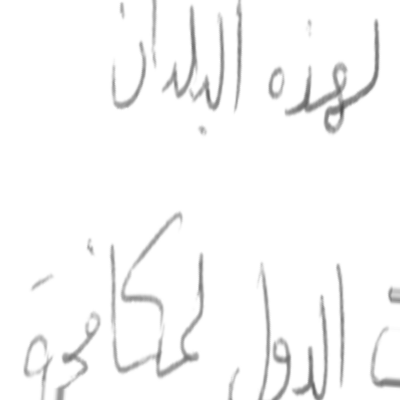 لهذه البلدان
الدول لمكافحة